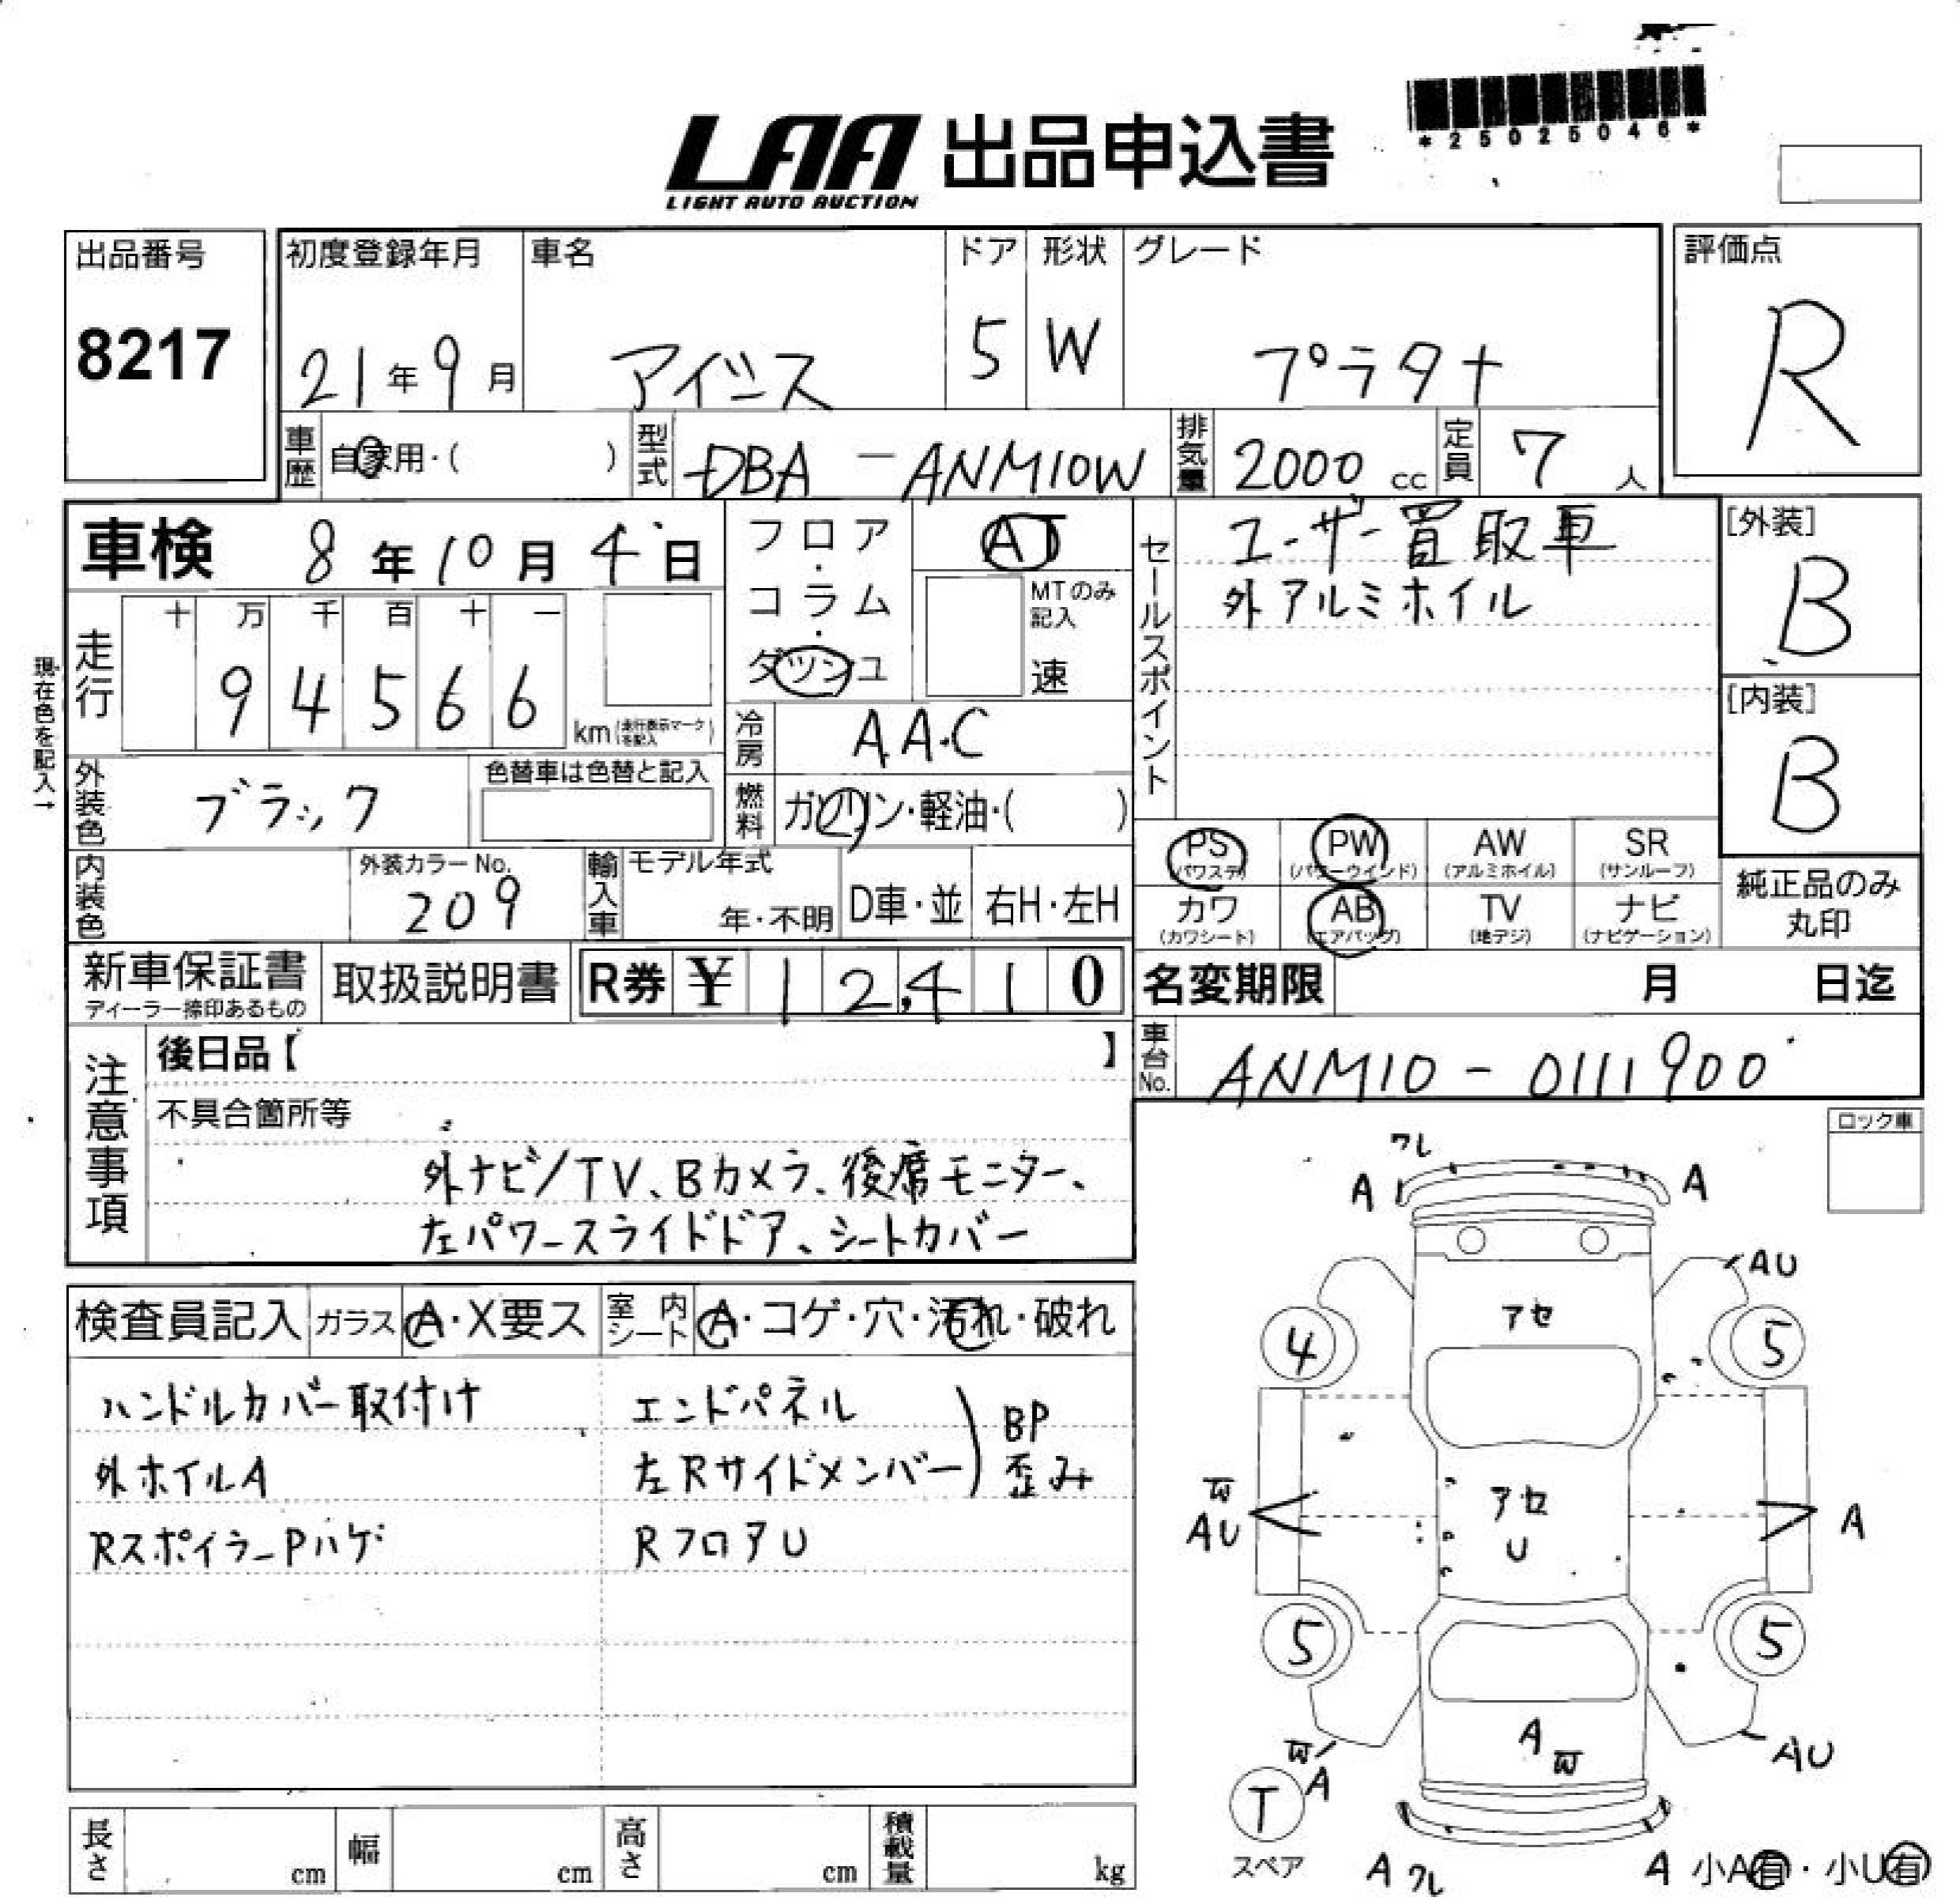 *25025046*
LAA 出品申込書
LIGHT AUTO AUCTION
出品番号
8217
初度登録年月
21年9月
車名
アイシス
ドア
5
形状
W
グレード
プラタナ
評価点
R
車歴
自家用・( )
型式
DBA-ANM10W
排気量
2000 cc
定員
7人
車検 8年10月4日
フロア・コラム・ダッシュ
AT
MTのみ記入
速
セールスポイント
ユーザー買取車
外アルミホイル
[外装]
B
[内装]
B
現在色を記入→
走行
十 万 千 百 十 一
9 4 5 6 6
km(走行表示マークを記入)
冷房
AAC
外装色
ブラック
色替車は色替と記入
燃料
ガソリン・軽油・( )
内装色
外装カラーNo.
209
輸入車
モデル年式
年・不明
D車・並
右H・左H
PS
(パワステ)
PW
(パワーウインド)
AW
(アルミホイル)
SR
(サンルーフ)
カワ
(カワシート)
AB
(エアバッグ)
TV
(地デジ)
ナビ
(ナビゲーション)
純正品のみ
丸印
新車保証書
ディーラー捺印あるもの
取扱説明書
R券 ¥ 12,410
名変期限 月 日迄
車台No.
ANM10-0111900
注意事項
後日品【 】
不具合箇所等
外ナビ/TV、Bカメラ、後席モニター、
左パワースライドドア、シートカバー
ロック車
検査員記入
ガラス
A・X要ス
室内シート
A・コゲ・穴・汚れ・破れ
ハンドルカバー取付け
外ホイルA
Rスポイラー Pハゲ
エンドパネル
左Rサイドメンバー
BP
歪み
RフロアU
ワレ
A
A
AU
アセ
4
5
W
AU
アセ
U
A
5
5
W
A
A W
AU
T
スペア
A ワレ
A
小A有・小U有
長さ cm
幅 cm
高さ cm
積載量 kg